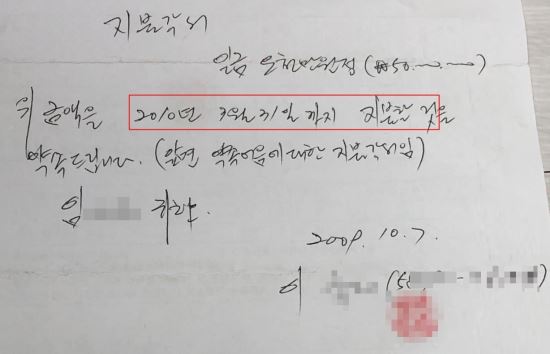 지불각서
일금 오천만원정 (₩50,000,000)
위 금액을 2010년 3월 31일 까지 지불할 것을
약속드립니다. (앞면 약속어음에 대한 지불각서임)
임 귀하.
2009. 10. 7.
이 (5